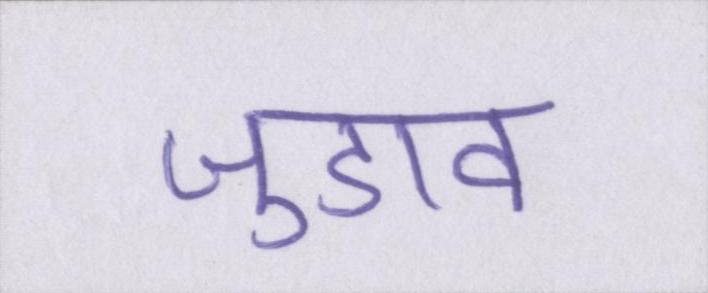 जुडाव